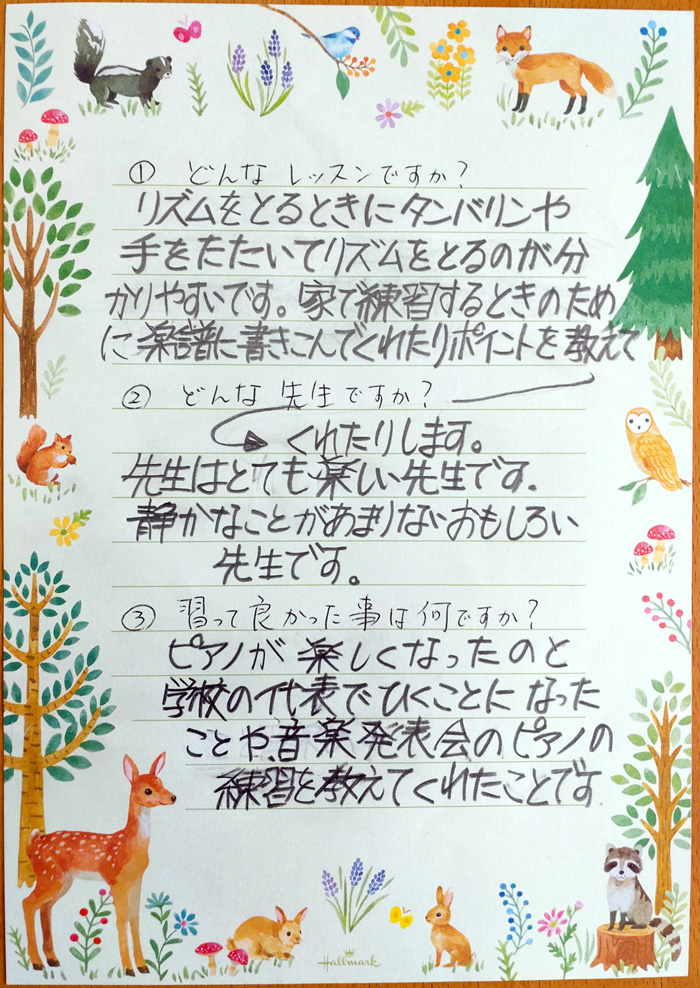 ① どんな レッスンですか?
リズムをとるときにタンバリンや
手をたたいてリズムをとるのが分
かりやすいです。家で練習するときのため
に楽譜に書きこんでくれたりポイントを教えて
くれたりします。
② どんな 先生ですか?
先生はとても楽しい先生です.
静かなことがあまりないおもしろい
先生です。
③ 習って良かった事は何ですか?
ピアノが楽しくなったのと
学校の代表でひくことになった
ことや、音楽発表会のピアノの
練習を教えてくれたことです.
Hallmark